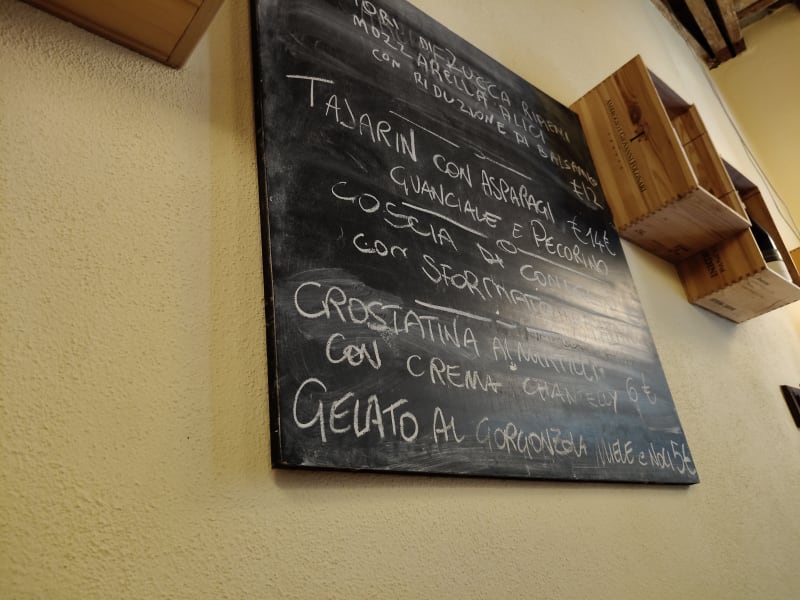 FIORI DI ZUCCA RIPIENI
MOZZARELLA ALICI
CON RIDUZIONE DI BALSAMICO
€12
TAJARIN CON ASPARAGI €14€
GUANCIALE E PECORINO
COSCIA DI
CON SFORMATO
CROSTATINA AI MIRTILLI
CON CREMA CHANTELLY 6€
GELATO AL GORGONZOLA MIELE e NOCI 5€